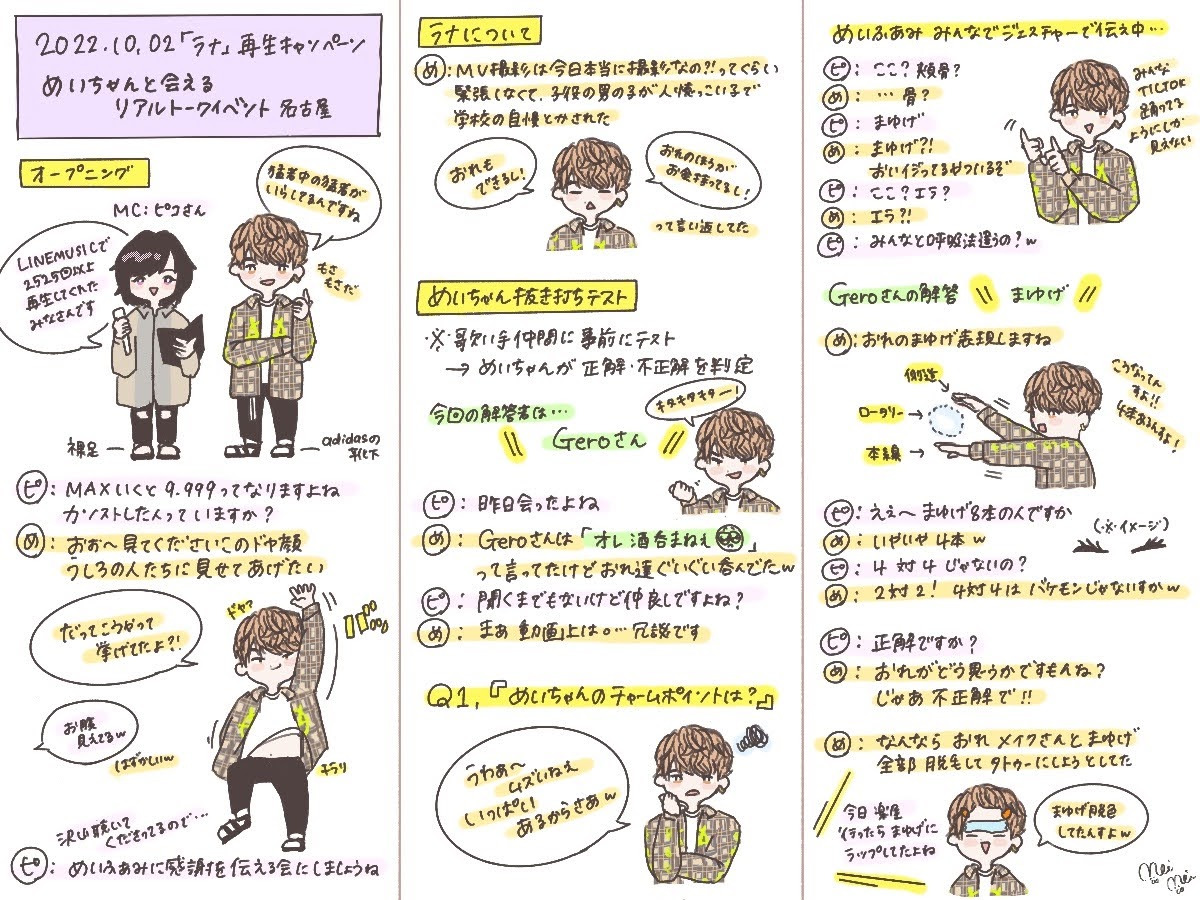 2022.10.02「ラナ」再生キャンペーン
めいちゃんと会える
リアルトークイベント 名古屋
オープニング
MC:ピコさん
猛者中の猛者が
いらしてるんですね
LINEMUSICで
2525回以上
再生してくれた
みなさんです
もさ
もさだ
裸足
adidasの
靴下
ピ:MAXいくと9.999ってなりますよね
カンストした人っていますか?
め:おお〜見てくださいこのドヤ顔
うしろの人たちに見せてあげたい
だってこうやって
挙げてたよ?!
ドヤァ
お腹
見えてるw
はずかしいw
チラリ
沢山聴いて
くださってるので…
ピ:めいふぁみに感謝を伝える会にしましょうね
ラナについて
め:MV撮影は今日本当に撮影なの?!ってくらい
緊張しなくて、子役の男の子が人懐っこい子で
学校の自慢とかされた
おれも
できるし!
おれのほうが
お金持ってるし!
って言い返してた
めいちゃん抜き打ちテスト
※歌い手仲間に事前にテスト
→めいちゃんが正解・不正解を判定
今回の解答者は…
Geroさん
キタキタキター!
ピ:昨日会ったよね
め:Geroさんは「オレ酒呑まねぇ」
って言ってたけどおれ達ぐいぐい呑んでたw
ピ:聞くまでもないけど仲良しですよね?
め:まあ動画上は。…冗談です
Q1,『めいちゃんのチャームポイントは?』
うわぁ〜
ムズいねえ
いっぱい
あるからさあw
めいふぁみ みんなでジェスチャーで伝え中…
ピ:ここ?頬骨?
め:…骨?
ピ:まゆげ
め:まゆげ?!
おいイジってるやついるぞ
ピ:ここ?エラ?
め:エラ?!
ピ:みんなと呼吸法違うの?w
みんな
TICTOK
踊ってる
ようにしか
見えない
Geroさんの解答 \\ まゆげ //
め:おれのまゆげ表現しますね
側道→
ロータリー→
本線→
こうなってん
すよ!!
4本あるんすよ!
ピ:ええ〜まゆげ8本の人ですか
め:いやいや4本w
(※イメージ)
ピ:4対4じゃないの?
め:2対2!4対4はバケモンじゃないすかw
ピ:正解ですか?
め:おれがどう思うかですもんね?
じゃあ不正解で!!
め:なんなら おれ メイクさんとまゆげ
全部脱毛してタトゥーにしようとしてた
今日楽屋
行ったらまゆげに
ラップしてたよね
まゆげ脱色
してたんすよw
mei
mei